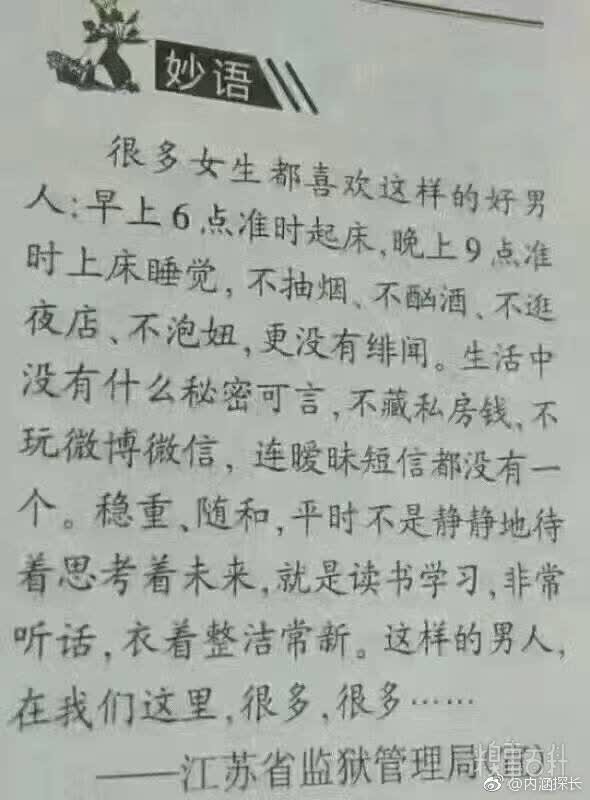 妙语
很多女生都喜欢这样的好男
人:早上6点准时起床,晚上9点准
时上床睡觉,不抽烟、不酗酒、不逛
夜店、不泡妞,更没有绯闻。生活中
没有什么秘密可言,不藏私房钱、不
玩微博微信,连暧昧短信都没有一
个。稳重、随和,平时不是静静地待
着思考着未来,就是读书学习,非常
听话,衣着整洁常新。这样的男人,
在我们这里,很多,很多……
——江苏省监狱管理局
糗事百科
@内涵探长